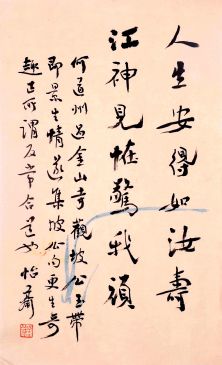 人生安得如汝壽
江神見怪驚我頑
何道州過金山寺觀坡公玉帶
即景生情遂集坡公句更生奇
趣正所謂反常合道也 怡